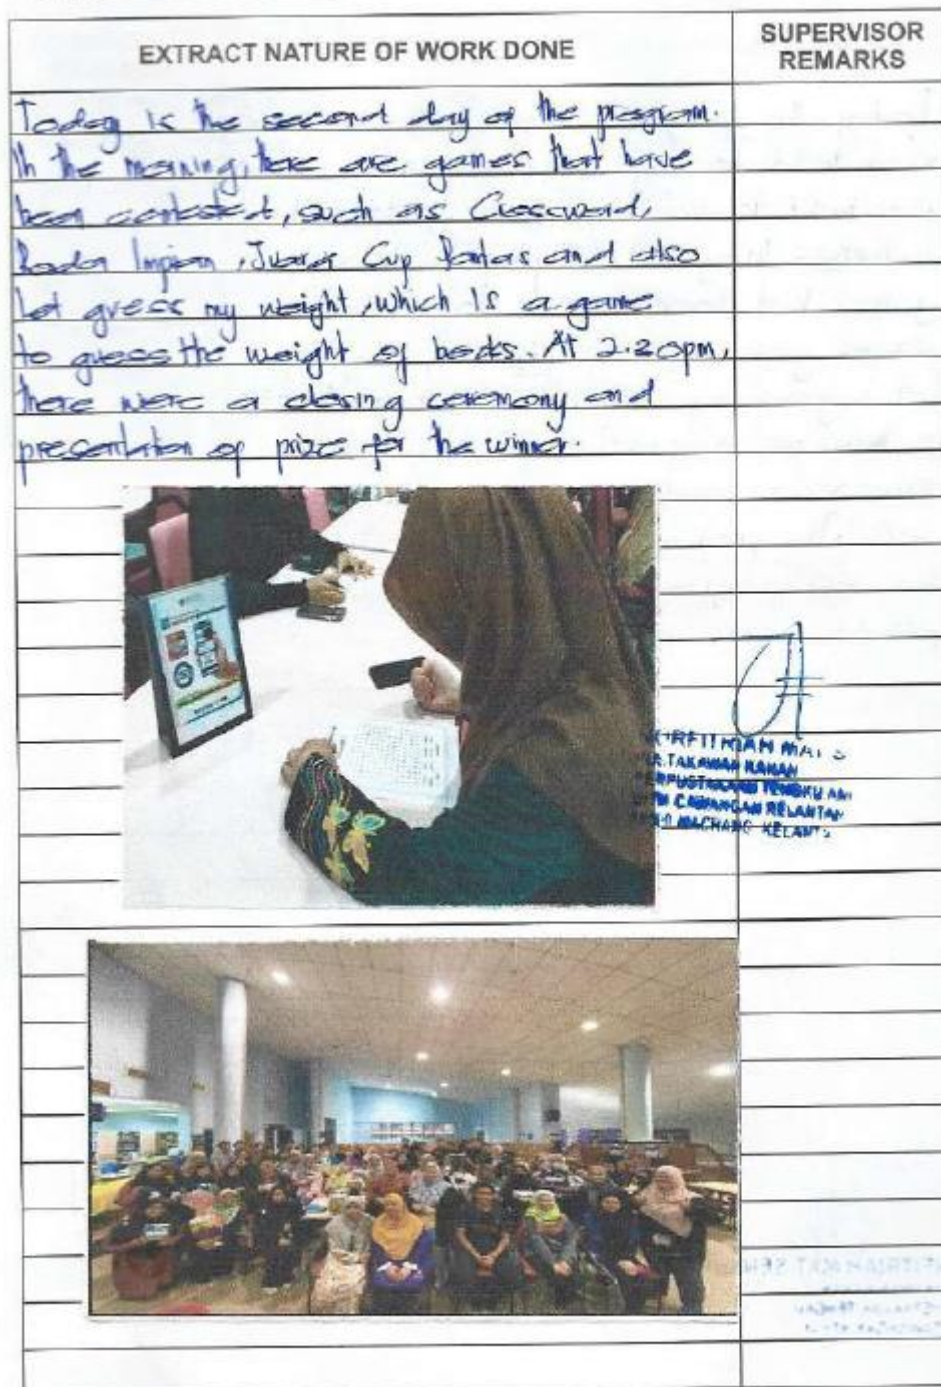 EXTRACT NATURE OF WORK DONE
SUPERVISOR
REMARKS
Today is the second day of the program.
In the morning, there are games that have
been contested, such as Crossword,
Roda Impian, Juara Cup Pantas and also
let guess my weight, which is a game
to guess the weight of books. At 2.20pm,
there were a closing ceremony and
presentation of prize for the winner.
CAWANGAN KELANTAN
MACHANG KELANTAN